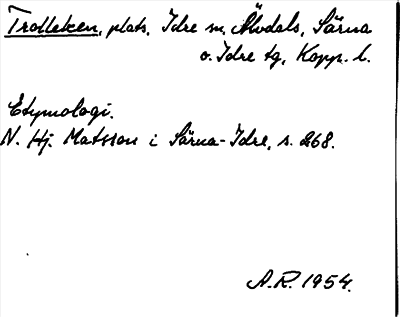 Trolleken, plats, Idre sn, Älvdals, Särna
o. Idre tg, Kopp. l.
Etymologi.
N. Hj. Matsson i Särna-Idre, s. 268.
A.R. 1954.